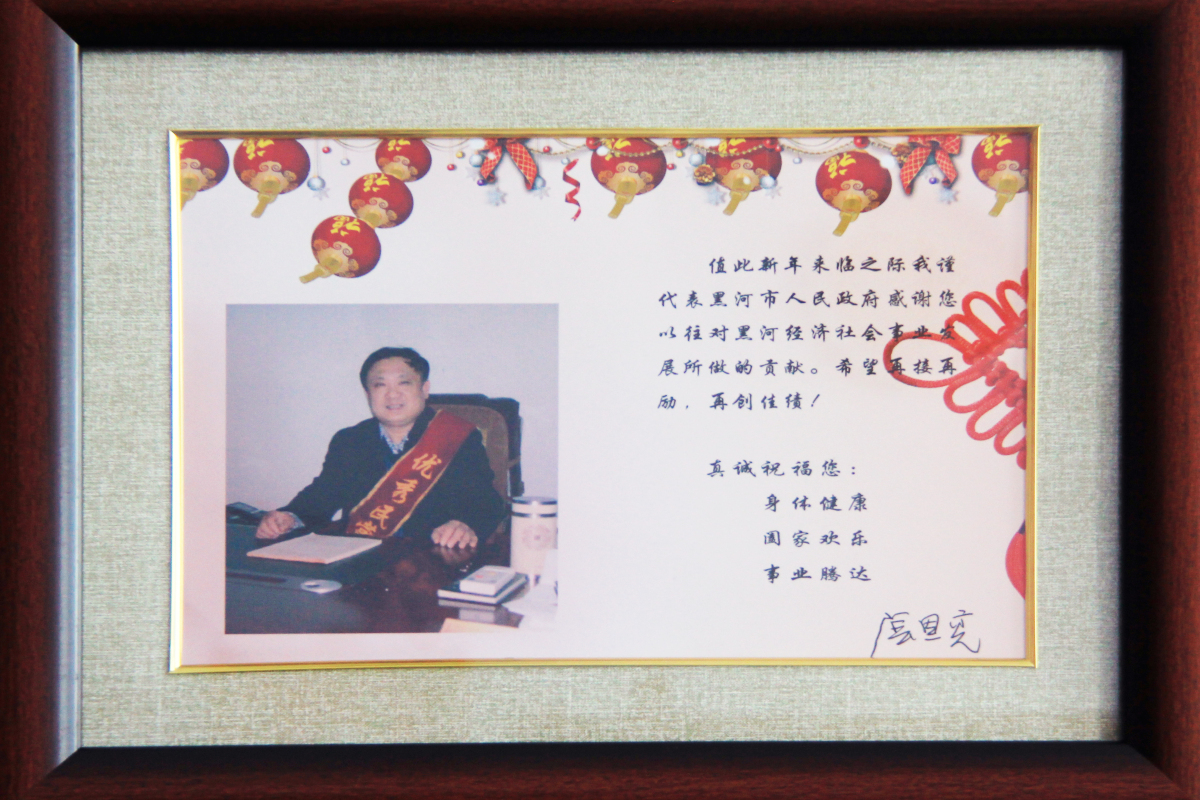 福
福
福
福
福
福
福
福
福
值此新年来临之际我谨
代表黑河市人民政府感谢您
以往对黑河经济社会事业发
展所做的贡献。希望再接再
励，再创佳绩！
优秀民营
真诚祝福您：
身体健康
阖家欢乐
事业腾达